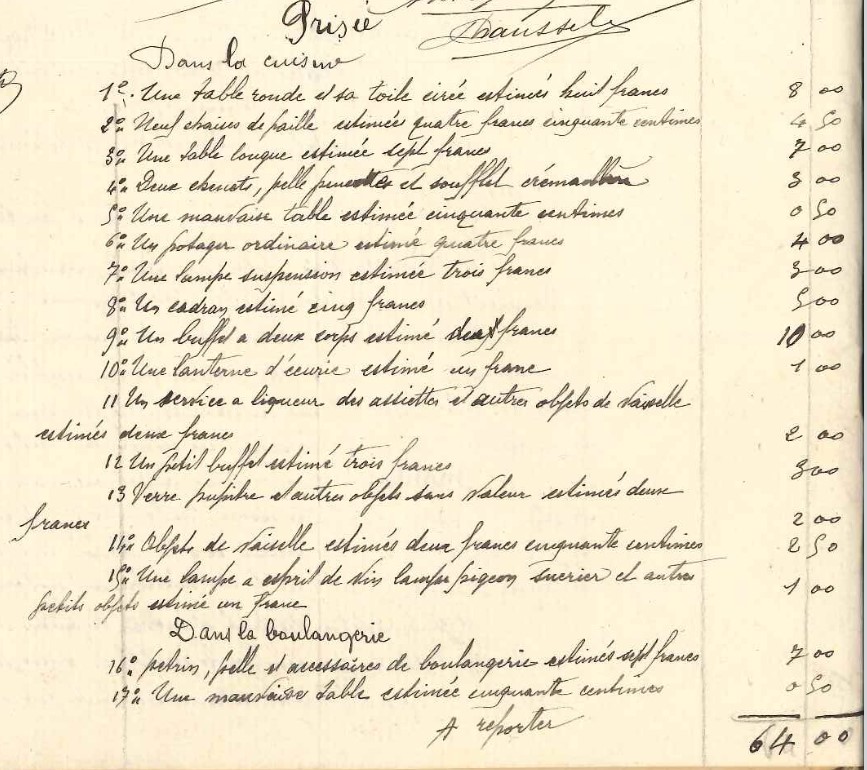 Prisée
Dans la cuisine
1º. Une table ronde et sa toile cirée estimés huit francs 8 00
2º Neuf chaises de paille estimées quatre francs cinquante centimes 4 50
3º Une table longue estimée sept francs 7 00
4º Deux chenets, pelle pincettes et soufflet crémaillère 3 00
5º Une mauvaise table estimée cinquante centimes 0 50
6º Un potager ordinaire estimé quatre francs 4 00
7º Une lampe suspension estimée trois francs 3 00
8º Un cadran estimé cinq francs 5 00
9º Un buffet a deux corps estimé francs 10 00
10º Une lanterne d'écurie estimé un franc 1 00
11 Un service a liqueur des assiettes et autres objets de vaiselle
estimés deux francs 2 00
12 Un petit buffet estimé trois francs 3 00
13 Verre pupitre et autres objets sans valeur estimés deux
francs 2 00
14º Objets de vaiselle estimés deux francs cinquante centimes 2 50
15º Une lampe a esprit de vin lampe pigeon sucrier et autres
petits objets estimé un franc 1 00
Dans la boulangerie
16º petrin, pelle et accessoires de boulangerie estimés sept francs 7 00
17º Une mauvaise table estimée cinquante centimes 0 50
A reporter
64 00